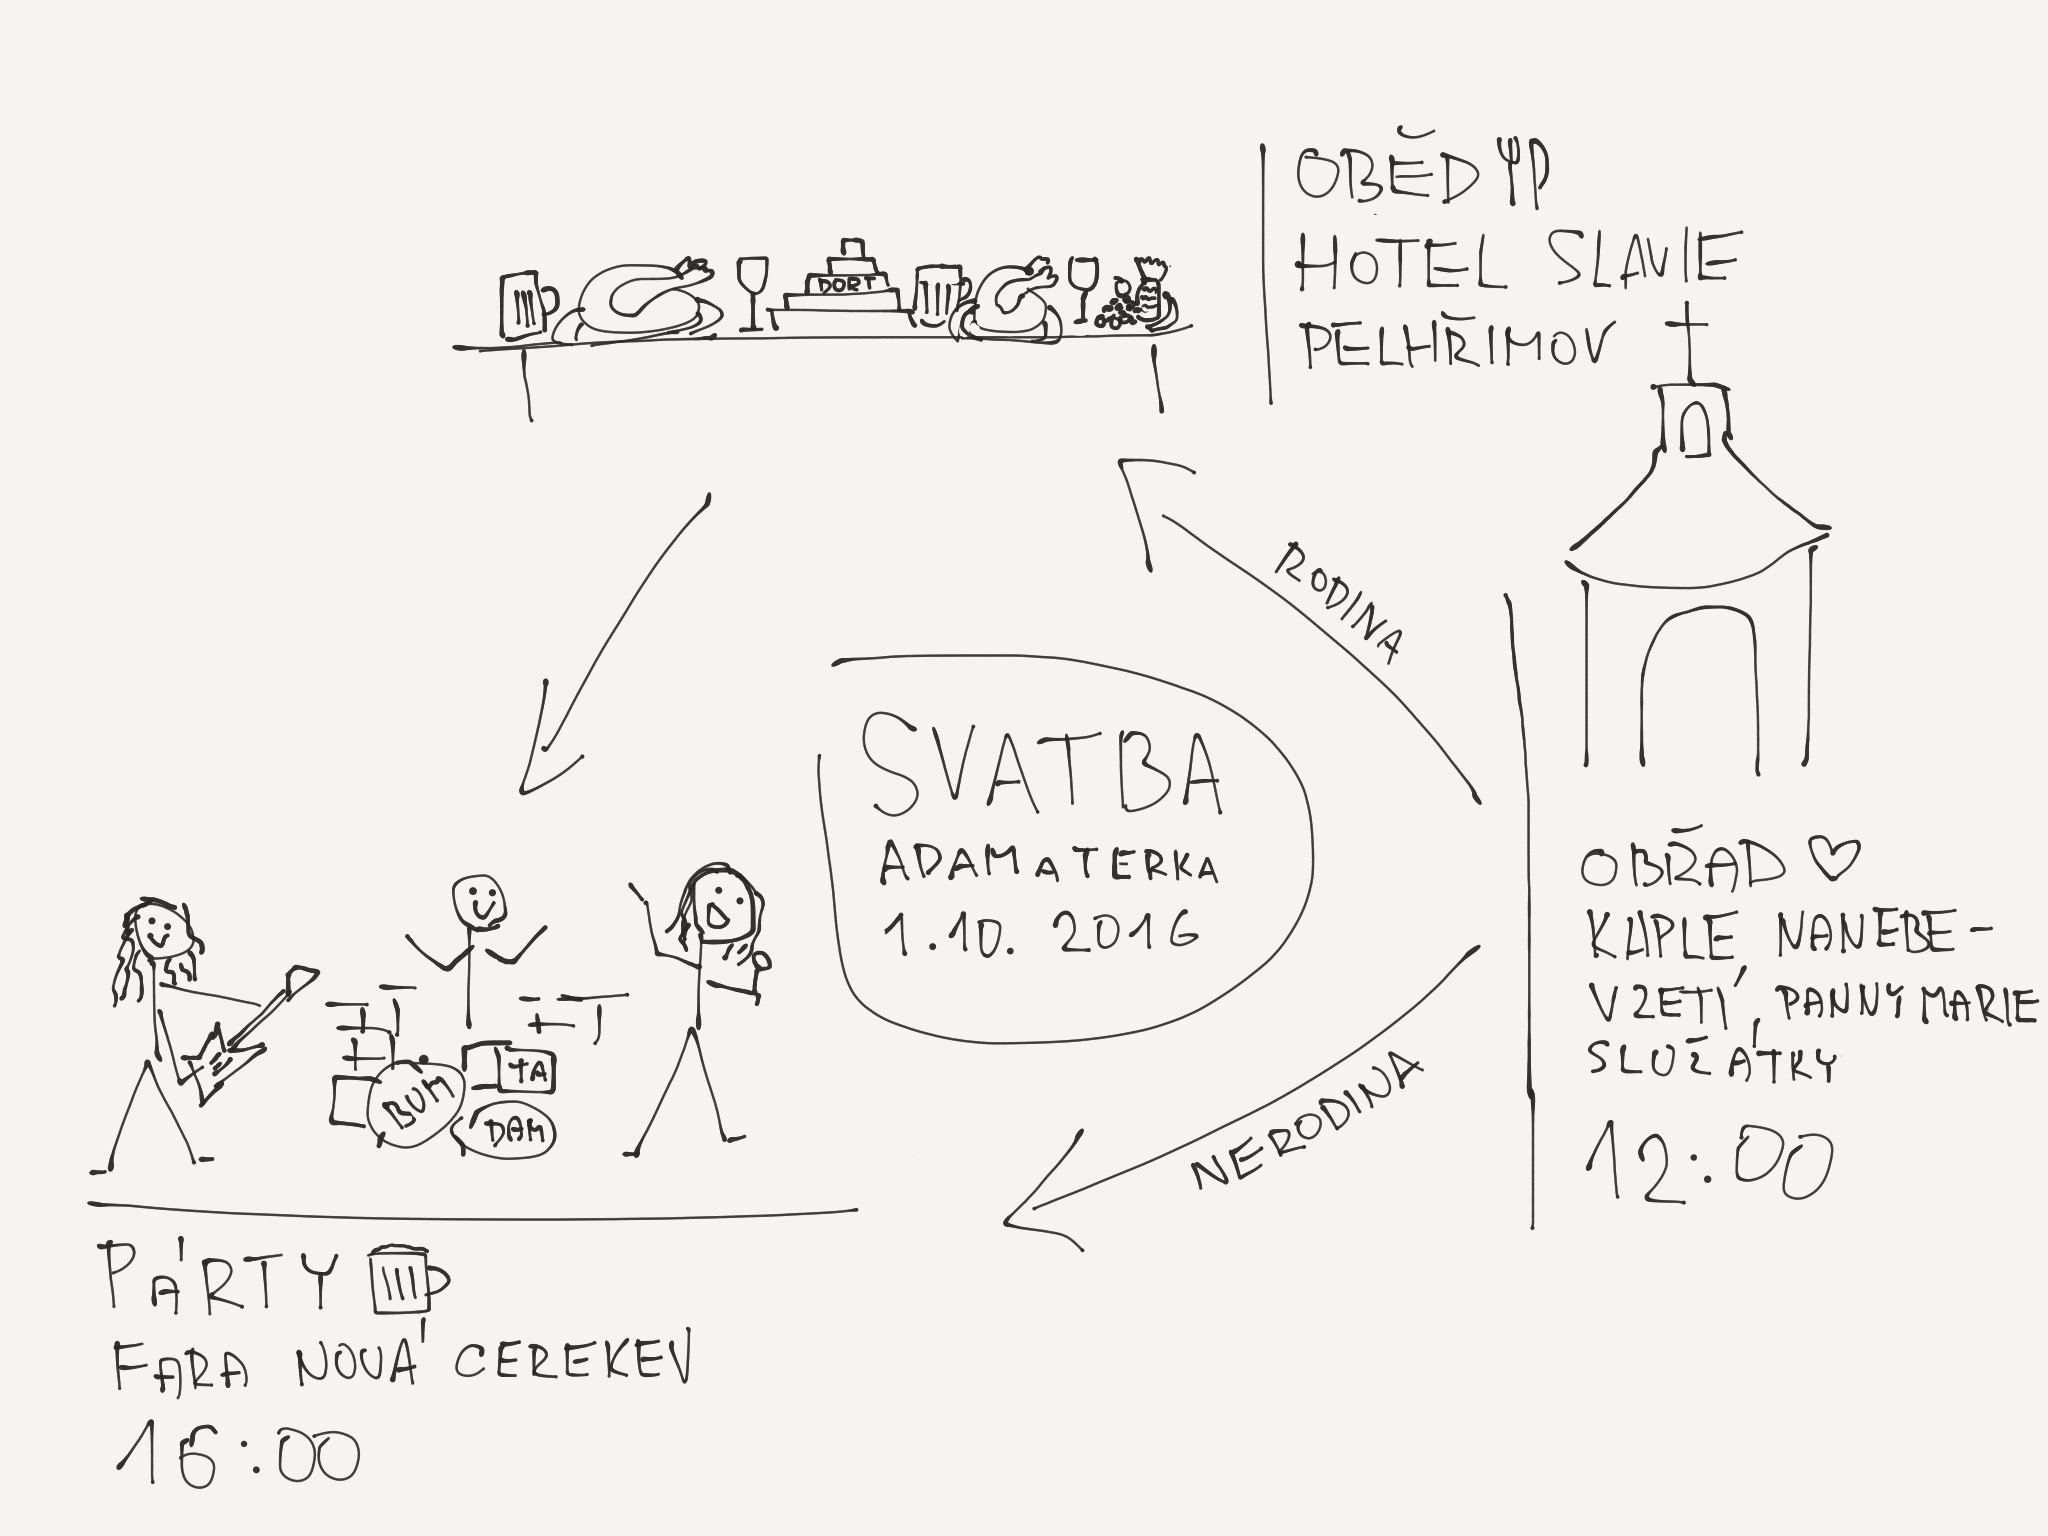 OBĚD
HOTEL SLAVIE
PELHŘIMOV
DORT
RODINA
SVATBA
ADAM a TERKA
1.10. 2016
OBŘAD
KAPLE NANEBE-
VZETÍ PANNY MARIE
SLUŽÁTKY
12:00
NERODINA
BUM
TA
DAM
PÁRTY
FARA NOVÁ CEREKEV
16:00